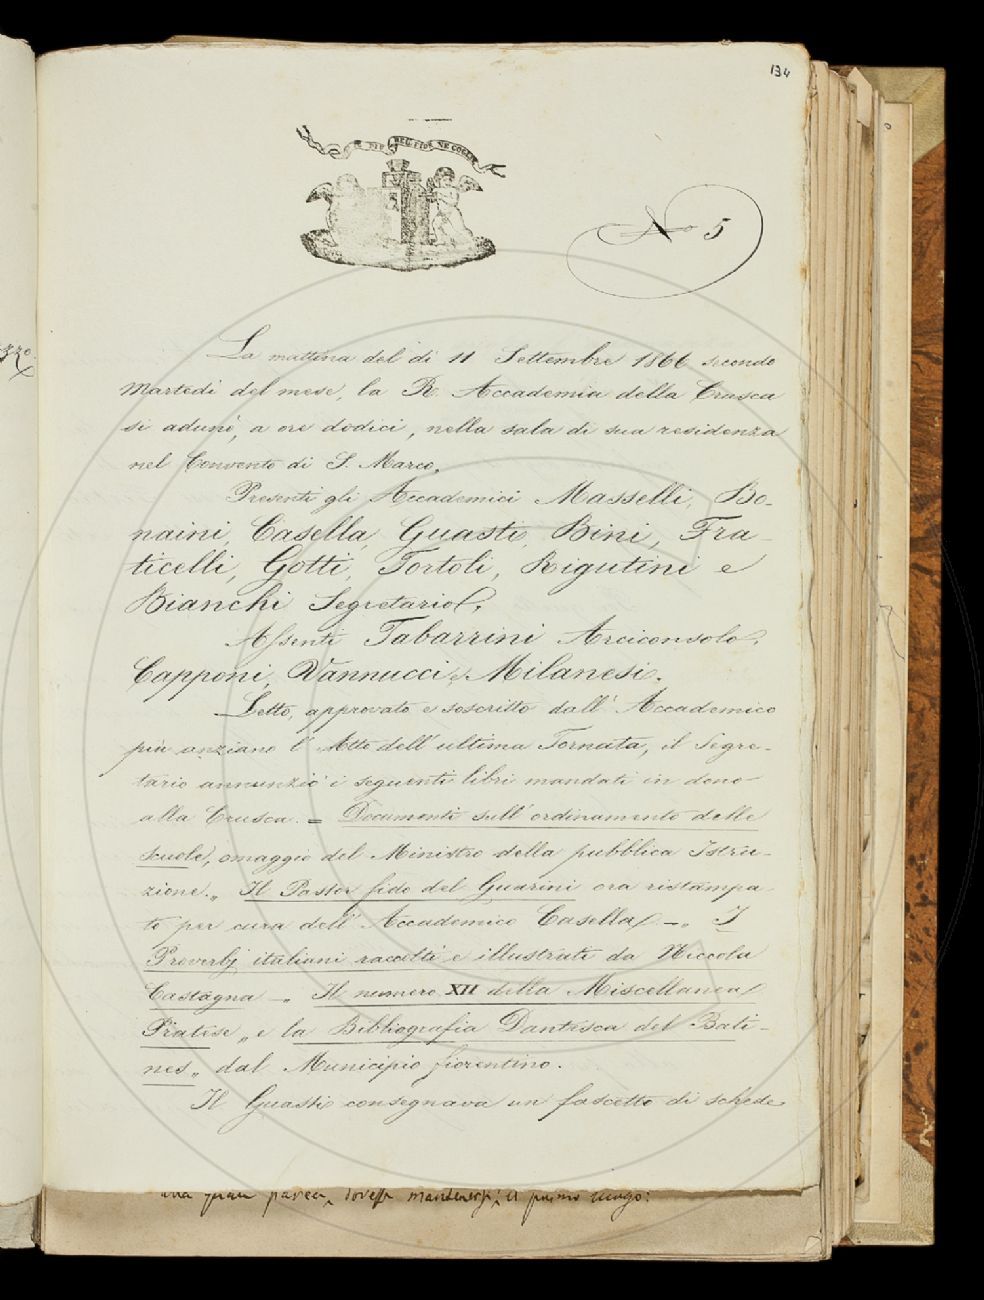 134
IL PIÙ BEL FIOR NE COGLIE
No 5
zzo.
La mattina del dì 11 Settembre 1866 secondo
Martedì del mese, la R. Accademia della Crusca
si adunò, a ore dodici, nella sala di sua residenza
nel Convento di S. Marco.
Presenti gli Accademici Masselli, Bo-
naini, Casella, Guasti, Bini, Fra-
ticelli, Gotti, Tortoli, Rigutini e
Bianchi Segretario.
Assenti Tabarrini Arciconsolo,
Capponi, Vannucci, Milanesi.
Letto, approvato e soscritto dall'Accademico
più anziano l'Atto dell'ultima Tornata, il Segre-
tario annunziò i seguenti libri mandati in dono
alla Crusca. = Documenti sull'ordinamento delle
scuole, omaggio del Ministro della pubblica Istru-
zione. „ Il Pastor fido del Guarini ora ristampa-
to per cura dell'Accademico Casella. – „ I
Proverbj italiani raccolti e illustrati da Niccola
Castagna – „ Il numero XII della Miscellanea
Pratese „ e la Bibliografia Dantesca del Bati-
nes „ dal Municipio fiorentino.
Il Guasti consegnava un fascetto di schede
una parea, dovesse mantenersi; il primo luogo: